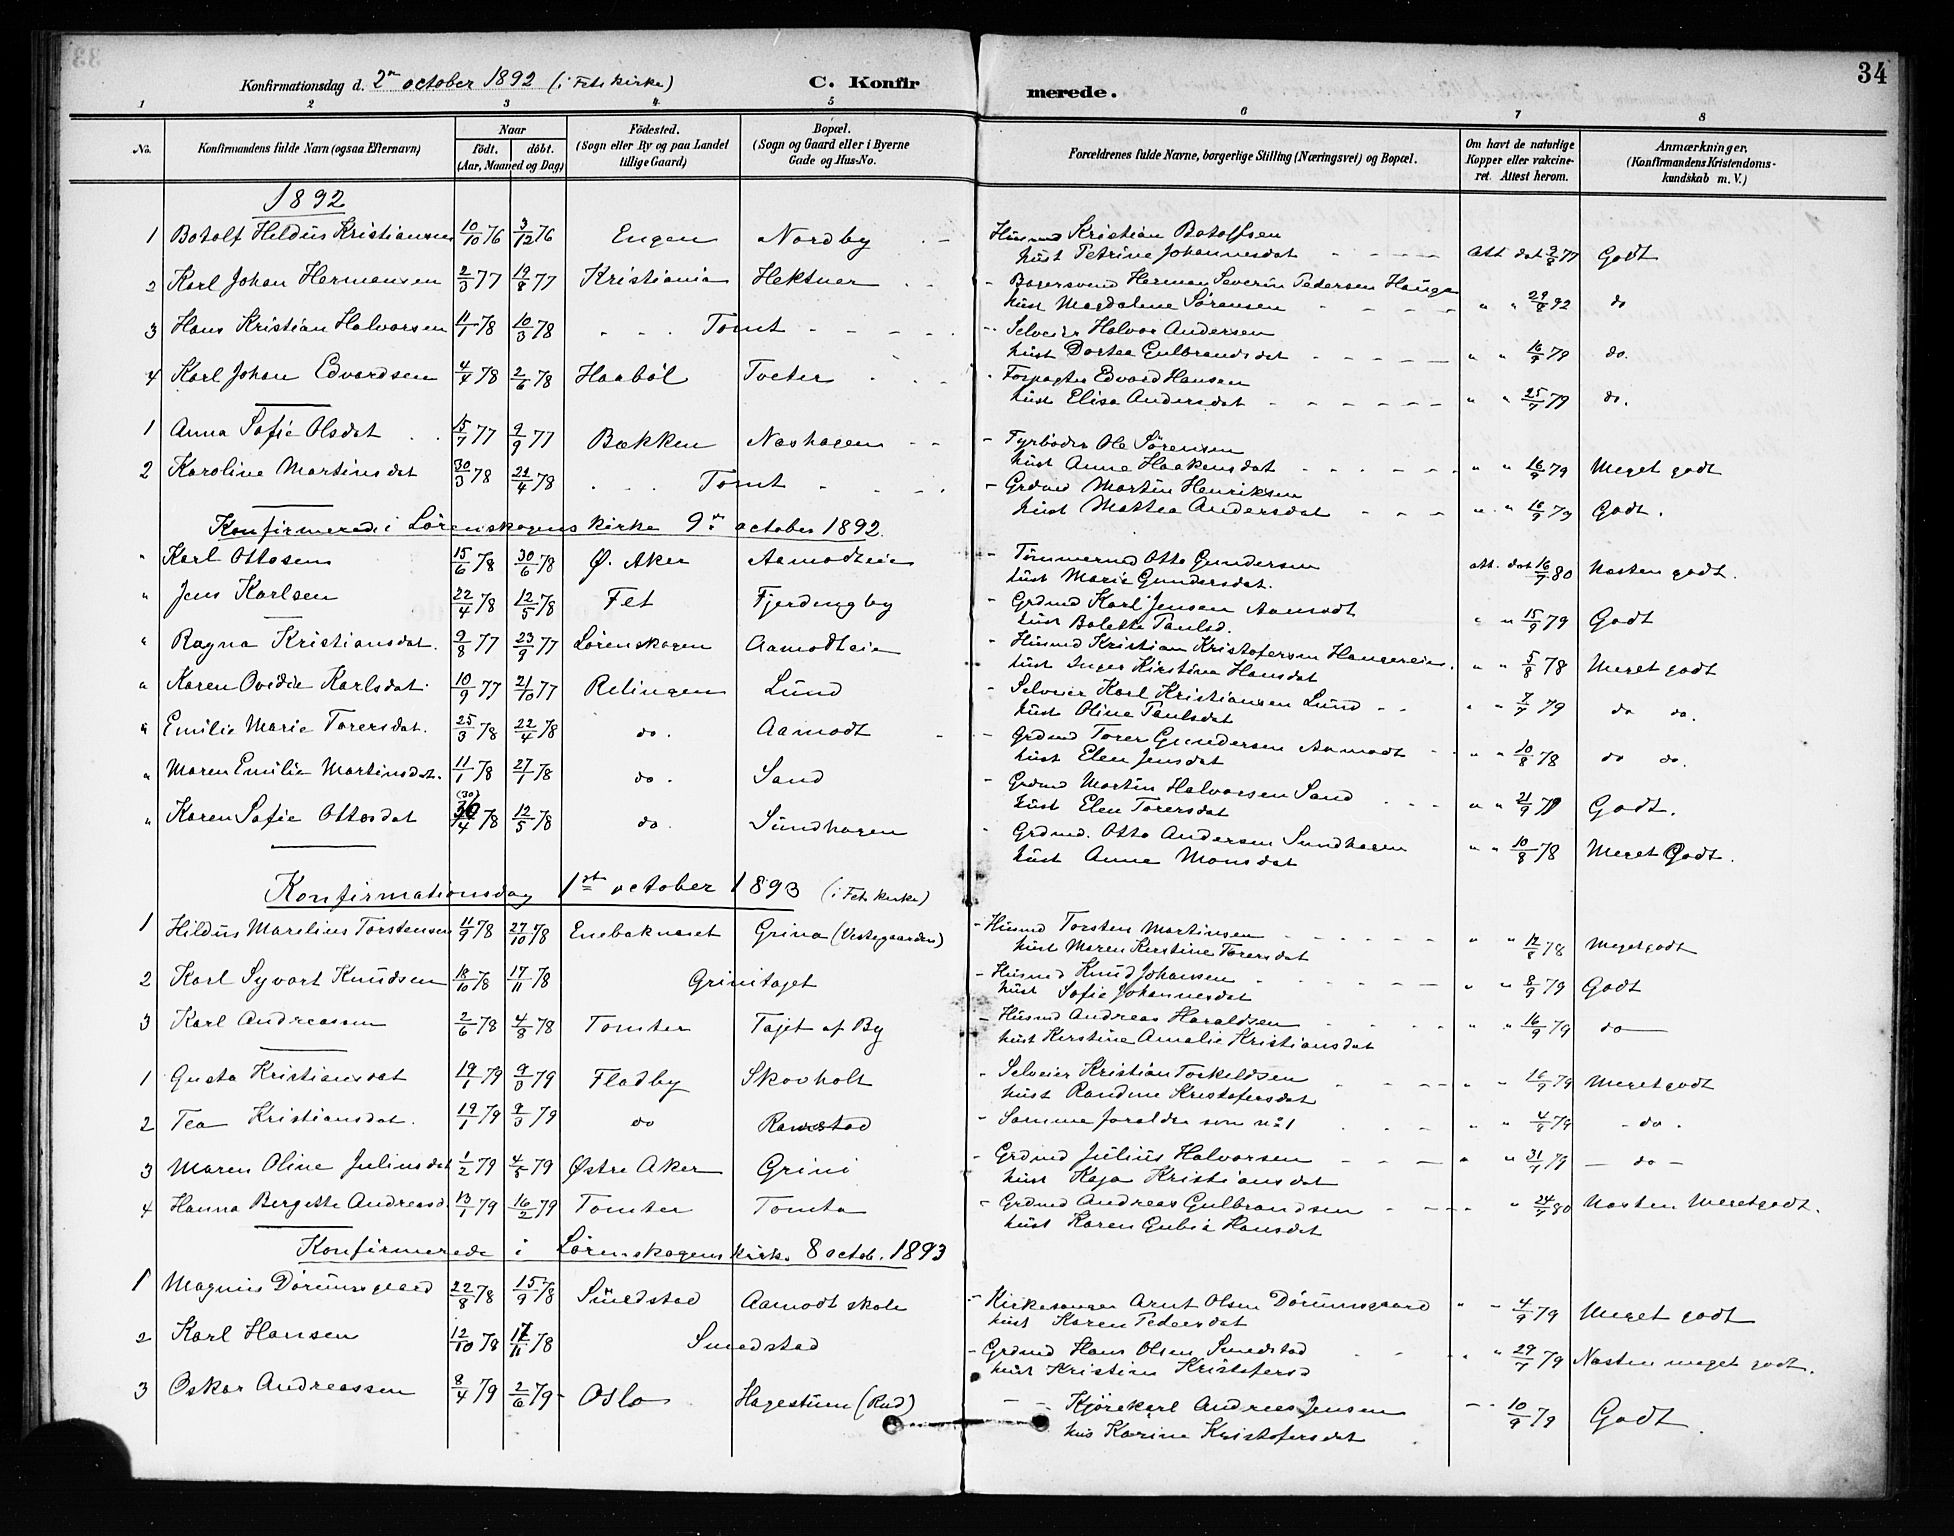 34
Konfirmationsdag d. 2den october 1892 (i Fets kirke) C. Konfirmerede.
1 2 3 4 5 6 7 8
No. Konfirmandens fulde Navn (ogsaa Efternavn) Naar født. døbt. (Aar, Maaned og Dag) Fødested. (Sogn eller By og paa Landet tillige Gaard) Bopæl. (Sogn og Gaard eller i Byerne Gade og Hus-No. Forældrenes fulde Navne, borgerlige Stilling (Næringsvei) og Bopæl. Om havt de naturlige Kopper eller vakcineret. Attest herom. Anmærkninger, (Konfirmandens Kristendomskundskab m. V.)
1892
1 Botolf Hildus Kristiansen 10/10 76 3/12 76 Engen Nordby Husmd Kristian Botolfsen
hust Petrine Johannesdat att dat 2/8 77 Godt
2 Karl Johan Hermansen 2/3 77 19/8 77 Kristiania Hektner Bagersvend Herman Severin Pedersen Hauge
hust Magdalene Sørensen " " 29/8 92 do
3 Hans Kristian Halvorsen 11/1 78 10/3 78 Tomt Selveier Halvor Andersen
hust Dortea Gulbrandsdat " " 16/9 79 do.
4 Karl Johan Edvardsen 4/4 78 2/6 78 Haabøl Tveter Forpagter Edvard Hansen
hust Elisa Andersdat " " 25/7 79 do.
1 Anna Sofie Olsdat 15/7 77 9/9 77 Bækken Næshagen Fyrbøder Ole Sørensen
hust Anne Haakensdat " " 16/9 79 Meget godt
2 Karoline Martinsdat 30/3 78 22/4 78 Tomt Grdmd Martin Henriksen
hust Mathea Andersdat " " 16/9 79 Godt.
Konfirmerede i Lørenskogens kirke 9de october 1892.
" Karl Ottosen 15/6 78 30/6 78 Ø. Aker Aamodteie Tømmermd Otto Gundersen
hust Marie Gundersdat. att. dat 16/7 80 Næsten godt.
" Jens Karlsen 22/4 78 12/5 78 Fet Fjerdingby Grdmd Karl Jensen Aamodt
hust Bolette Paulsd. " " 15/9 79 Godt
" Ragna Kristiansdat. 9/8 77 23/9 77 Lørenskogen Aamodteie Husmd Kristian Kristofersen Haugereie.
hust Inger Kirstine Hansdat " " 5/8 78 Meget godt
" Karen Ovidia Karlsdat. 10/9 77 21/10 77 Relingen Lund Selveier Karl Kristiansen Lund
hust Oline Paulsdat " " 7/7 79 do do.
" Emilie Marie Torersdat. 25/3 78 22/4 78 do. Aamodt Grdmd Torer Gundersen Aamodt
hust Elen Jensdat " " 10/8 78 do do.
" Maren Emilie Martinsdat. 11/1 78 27/1 78 do. Sand Grdmd Martin Halvorsen Sand
hust Elen Torersdat " " 21/9 79 Godt.
" Karen Sofie Ottosdat (30) /4 78 12/5 78 do. Sundhagen Grdmd. Otto Andersen Sundhagen
hust Anne Monsdat " " 10/8 78 Meget Godt.
Konfirmationsdag 1st october 1893 (i Fets kirke)
1 Hildus Marelius Torstensen 11/9 78 27/10 78 Enebaknæset Grina (Vestgaarden) Husmd Torsten Martinsen
hust Maren Kirstine Torersdat " " 12/8 78 Meget godt
2 Karl Syvart Knudsen 18/10 78 17/11 78 Grinitajet Husmd Knud Johansen
hust Sofie Johannesdat " " 8/9 79 Godt
3 Karl Andreassen 2/6 78 4/8 78 Tomter Tajet af By Husmd Andreas Haraldsen
hust Kirstine Amalie Kristiansdat " " 16/9 79 do
1 Gusta Kristiansdat 19/1 79 9/3 79 Fladby Skovholt Selveier Kristian Torkeldsen
hust Randine Kristofersdat " " 16/9 79 Meget godt
2 Tea Kristiansdat. 19/1 79 9/3 79 do Ramstad Samme foreldre som no 1 " " 4/9 79 - do -
3 Maren Oline Juliusdat 1/2 79 4/5 79 Østre Aker Grini Grdmd Julius Halvorsen
hust Kaja Kristiansdat " " 31/7 79 - do -
4 Hanna Bergitte Andreasd. 13/1 79 16/2 79 Tomter Tomta Grdmd Andreas Gulbrandsen
hust Karen Gubia Hansdat " 24/7 80 Næsten Meget godt.
Konfirmerede i Lørenskogens kirk. 8 octob. 1893
1 Magnus Dørumsgaard 22/8 78 15/9 78 Smedstad Aamodt skole Kirkesanger Arnt Olsen Dørumsgaard
hust Karen Pedersdat " " 4/9 79 Meget godt
2 Karl Hansen 12/10 78 17/11 78 Smedstad Grdmd Hans Olsen Smedstad
hust Kristine Kristofersd " " 29/7 79 Næsten meget godt.
3 Oskar Andreassen 8/4 79 2/6 79 Oslo Hagestuen (Rud) Kjørekarl Andreas Jensen
hus Karine Kristofersdat 10/9 79 Godt.